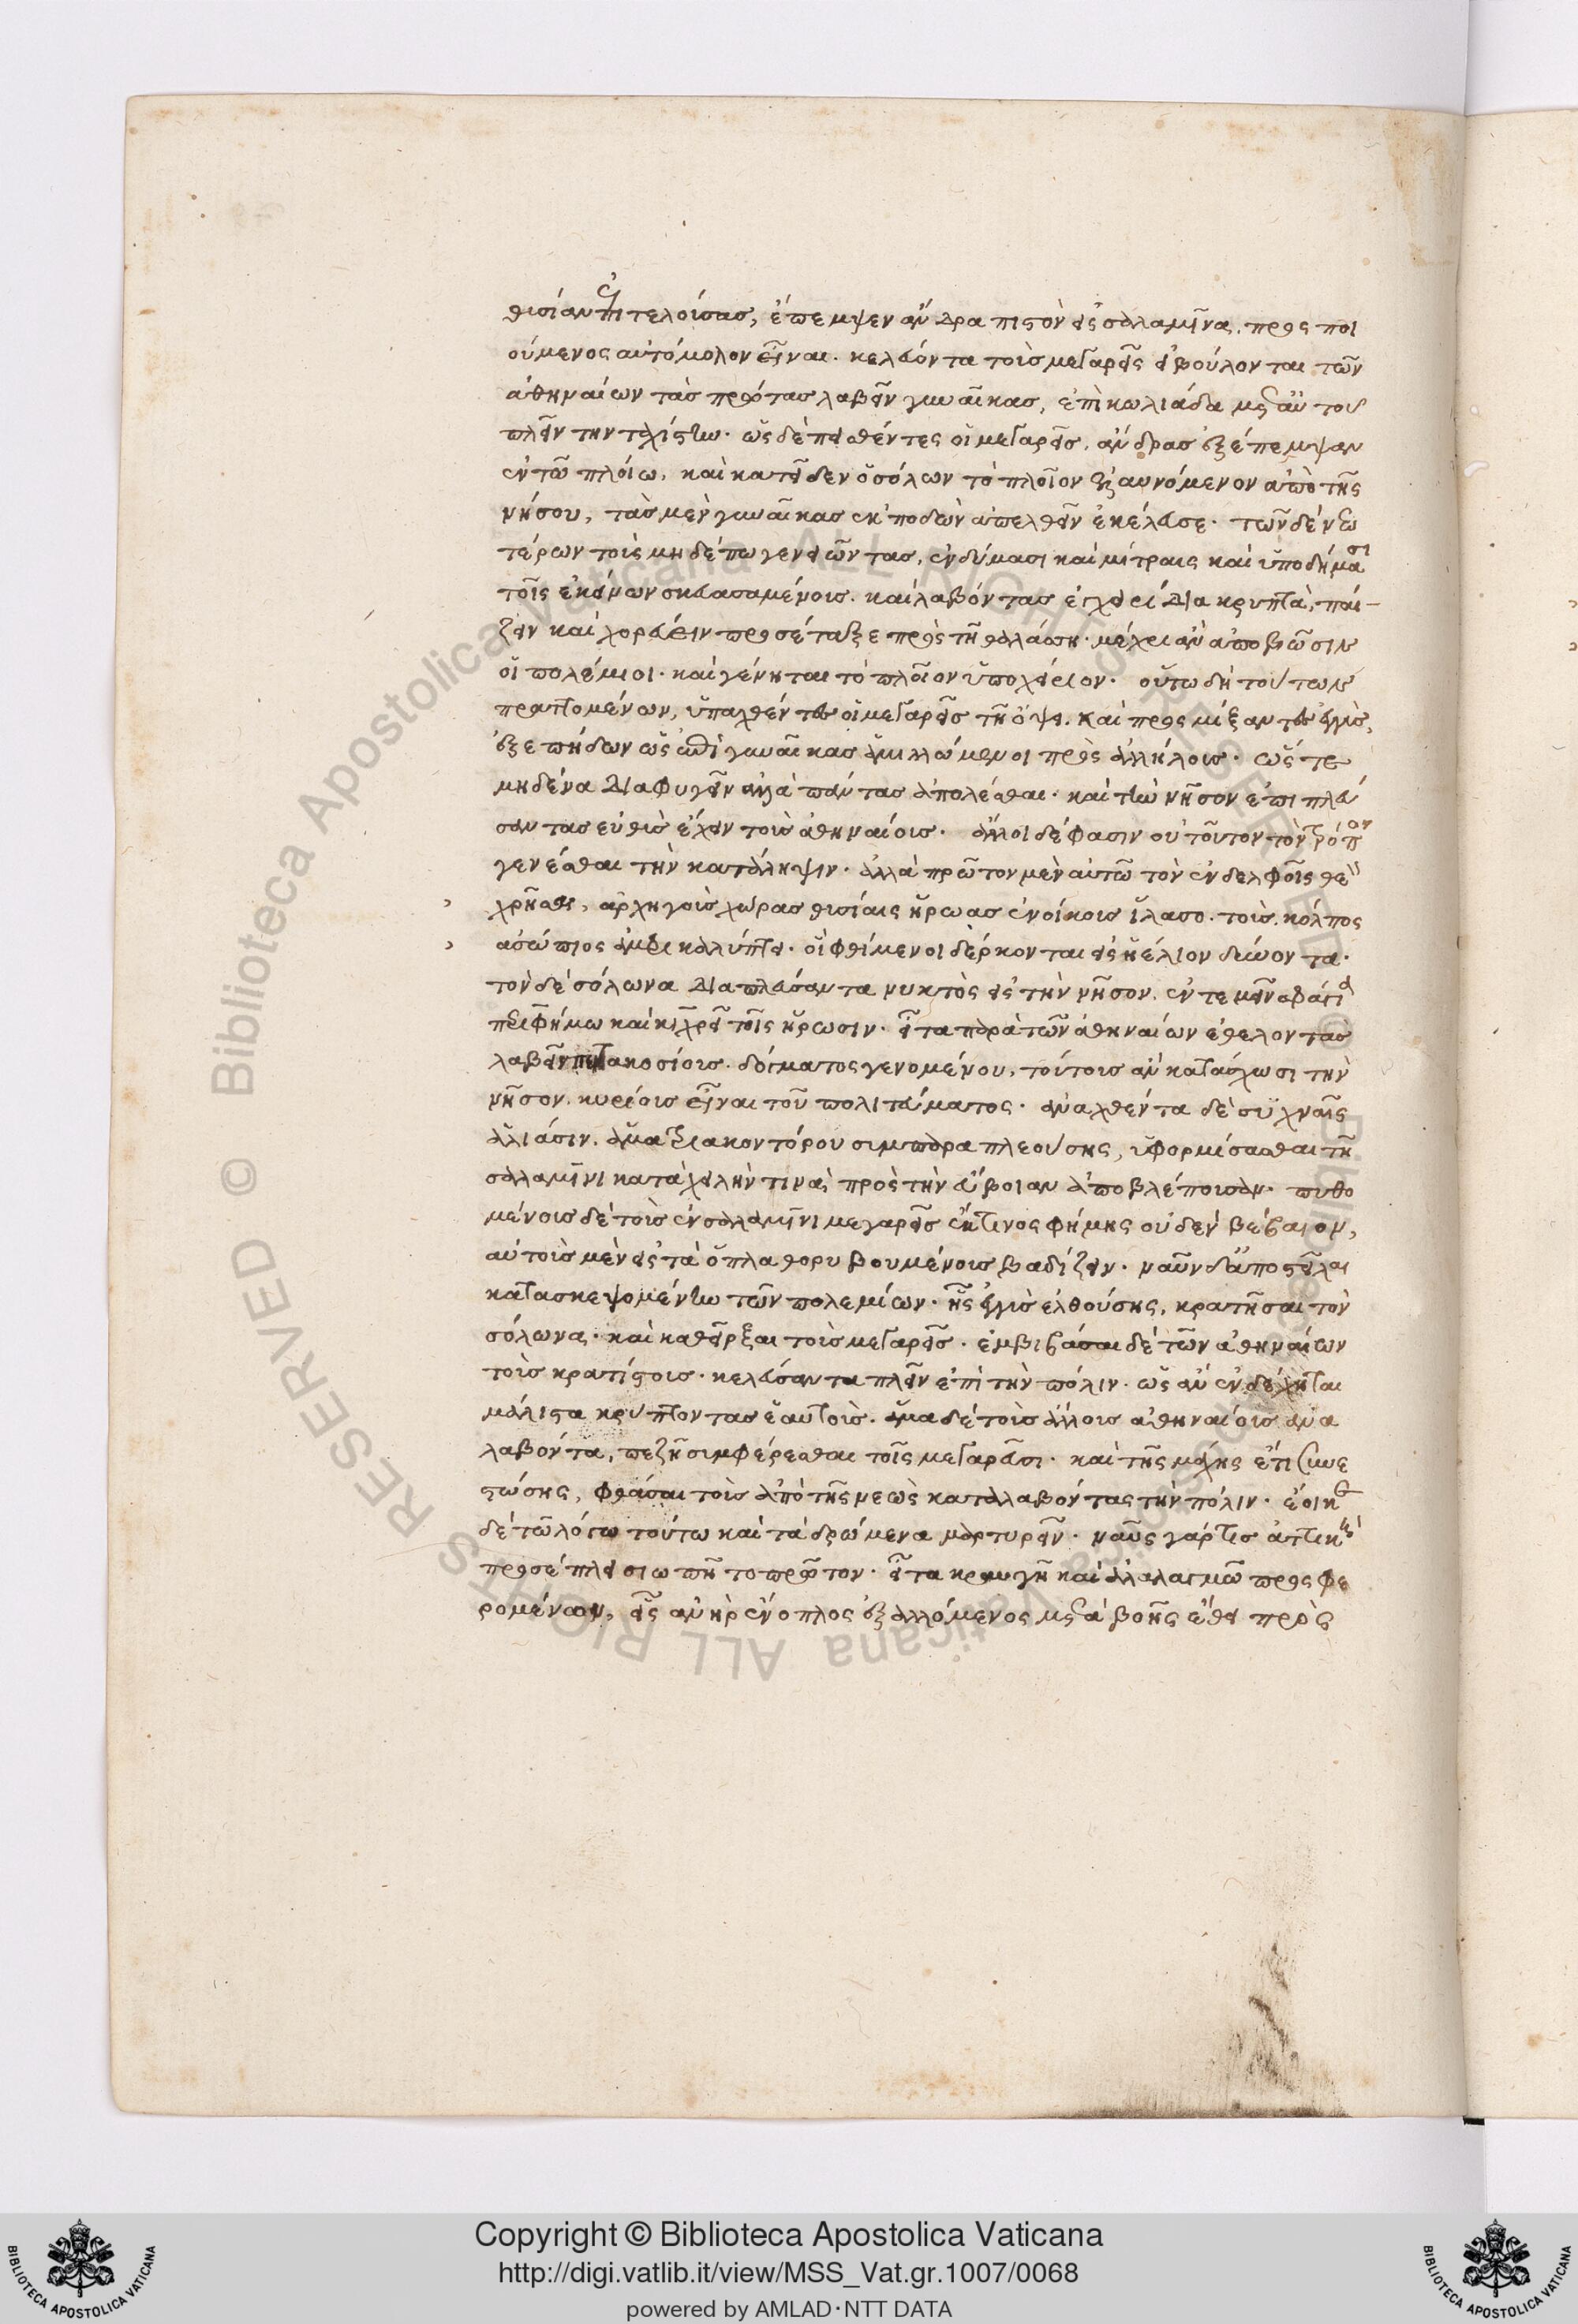 θυσίαν ἐπιτελούσας, ἔπεμψεν ἄνδρα πιστὸν εἰς σαλαμῖνα, προςποι
ούμενος αὐτόμολον εἶναι. κελεύοντα τοὺς μεγαρεῖς εἰ βούλονται τῶν
ἀθηναίων τὰς πρώτας λαβεῖν γυναῖκας, ἐπὶ κωλιάδα μετ' αὐτοῦ
πλεῖν τὴν ταχίστην. ὡς δὲ πεισθέντες οἱ μεγαρεῖς, ἄνδρας ἐξέπεμψαν
ἐν τῶ πλοίω, καὶ κατεῖδεν ὁ σόλων τὸ πλοῖον ἐλαυνόμενον ἀπὸ τῆς
νήσου, τὰς μὲν γυναῖκας ἐκποδὼν ἀπελθεῖν ἐκέλευσε. τῶν δὲ νεω
τέρων τοὺς μηδέπω γενειῶντας, ἐνδύμασι καὶ μίτραις καὶ ὑποδήμασι
τοῖς ἐκείνων σκευασαμένους. καὶ λαβόντας ἐγχειρίδια κρυπτὰ, παί-
ζειν καὶ χορεύειν προσέταξε πρὸς τῆ θαλάσση. μέχρι ἂν ἀποβῶσιν
οἱ πολέμιοι. καὶ γένηται τὸ πλοῖον ὑποχείριον. οὕτω δὴ τούτων
πραττομένων, ὑπαχθέντες οἱ μεγαρεῖς τῆ ὄψει. καὶ προςμίξαντες ἐγγὺς,
ἐξεπήδων ὡς ἐπὶ γυναῖκας ἁμιλλώμενοι πρὸς ἀλλήλους. ὥςτε
μηδένα διαφυγεῖν ἀλλὰ πάντας ἀπολέσθαι. καὶ τὴν νῆσον ἐπιπλεύ
σαντας εὐθὺς ἔχειν τοὺς ἀθηναίους. ἄλλοι δέ φασιν οὐ τοῦτον τὸν τρόπον
γενέσθαι τὴν κατάληψιν. ἀλλὰ πρῶτον μὲν αὐτῶ τὸν ἐν δελφοῖς θεὸν
χρῆσαι, ἀρχηγοὺς χώρας θυσίαις ἥρωας ἐνοίκους ἵλασο. τοὺς κόλποις
ἀσώπιος ἀμφικαλύπτει. οἳ φθίμενοι δέρκονται εἰς ἠέλιον δύνοντα.
τὸν δὲ σόλωνα διαπλεύσαντα νυκτὸς εἰς τὴν νῆσον, ἐντεμεῖν σφάγια
περιφήμω καὶ κιχρεῖ τοῖς ἥρωσιν. εἶτα παρὰ τῶν ἀθηναίων ἐθελοντὰς
λαβεῖν πεντακοσίους. δόγματος γενομένου, τούτους ἂν κατάσχωσι τὴν
νῆσον. κυρίους εἶναι τοῦ πολιτεύματος. ἀναχθέντα δὲ συχναῖς
ἁλιάσιν. ἅμα τριακοντόρου συμπαραπλεούσης, ὑφορμίσασθαι τῆ
σαλαμῖνι κατὰ χηλήν τινα πρὸς τὴν εὔβοιαν ἀποβλέπουσαν. πυθο
μένους δὲ τοὺς ἐν σαλαμῖνι μεγαρεῖς ἔκ τινος φήμης οὐδὲν βέβαιον,
αὐτοὺς μὲν εἰς τὰ ὅπλα θορυβουμένους βαδίζειν. ναῦν δ' ἀποστεῖλαι
κατασκεψομένην τῶν πολεμίων. ἧς ἐγγὺς ἐλθούσης, κρατῆσαι τὸν
σόλωνα. καὶ καθεῖρξαι τοὺς μεγαρεῖς. ἐμβιβάσαι δὲ τῶν ἀθηναίων
τοὺς κρατίστους. κελεύσαντα πλεῖν ἐπὶ τὴν πόλιν. ὡς ἂν ἐνδέχηται
μάλιστα κρύπτοντας ἑαυτοὺς. ἅμα δὲ τοὺς ἄλλους ἀθηναίους ἀνα
λαβόντα, πεζῆ συμφέρεσθαι τοῖς μεγαρεῦσι. καὶ τῆς μάχης ἔτι συνε
στώσης, φθάσαι τοὺς ἀπὸ τῆς νεὼς καταλαβόντας τὴν πόλιν. ἔοικε
δὲ τῶ λόγω τούτω καὶ τὰ δρώμενα μαρτυρεῖν. ναῦς γάρ τις ἀττικὴ
προσέπλει σιωπῆ τοπρῶτον. εἶτα κραυγῆ καὶ ἀλαλαγμῶ προςφε
ρομένων, εἷς ἀνὴρ ἔνοπλος ἐξαλλόμενος μετὰ βοῆς ἔθει πρὸς
Copyright © Biblioteca Apostolica Vaticana
http://digi.vatlib.it/view/MSS_Vat.gr.1007/0068
powered by AMLAD·NTT DATA